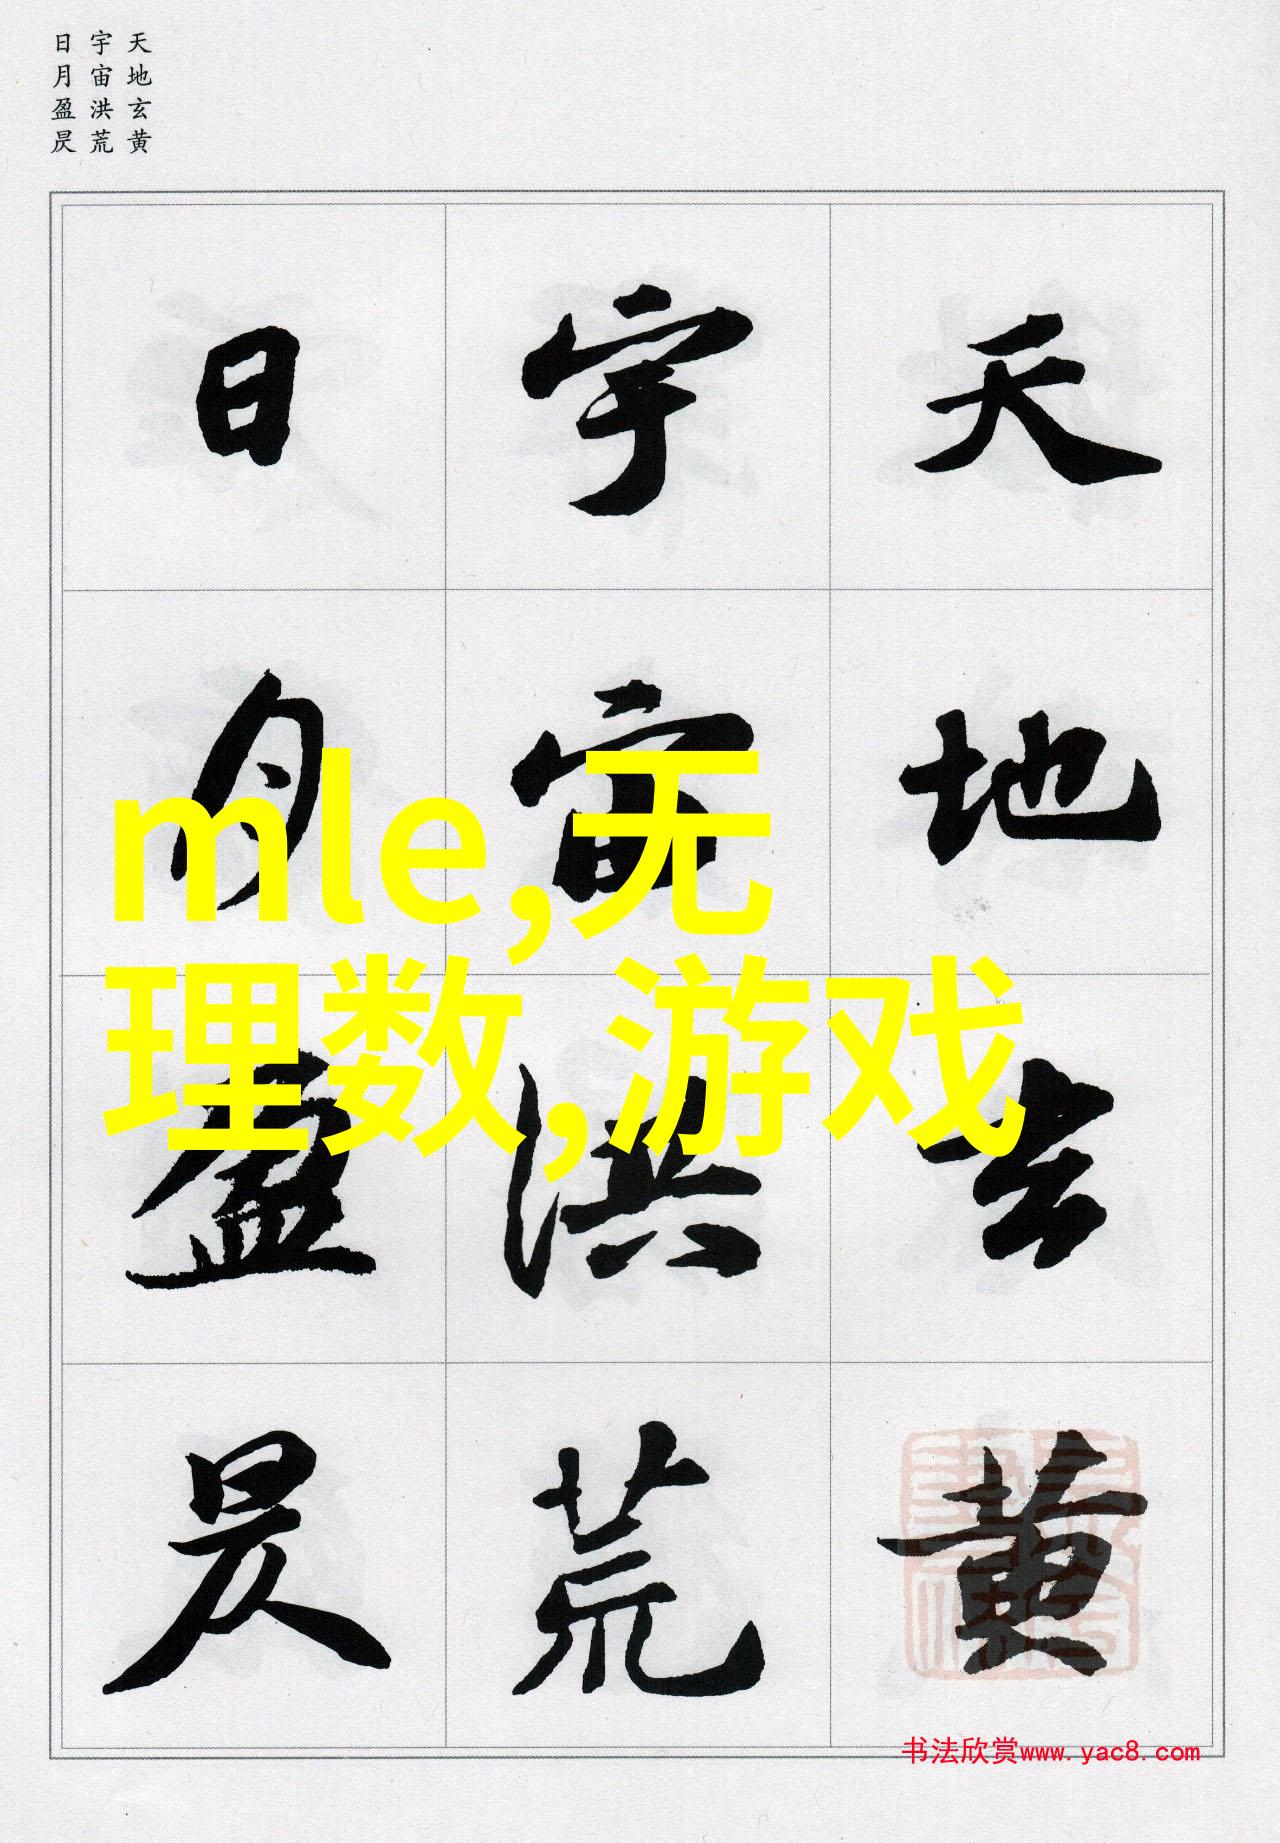 天地玄黄
宇宙洪荒
日月盈昃
天地玄黄
宇宙洪荒
日月盈昃
mle,无
理数,游戏
书法欣赏www.yac8.com